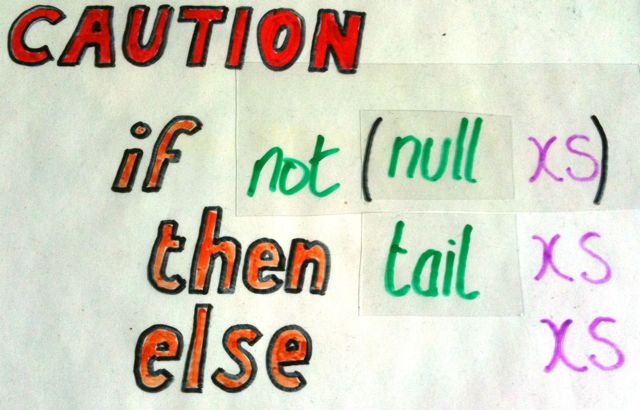 CAUTION
if not (null xs)
then tail xs
else xs